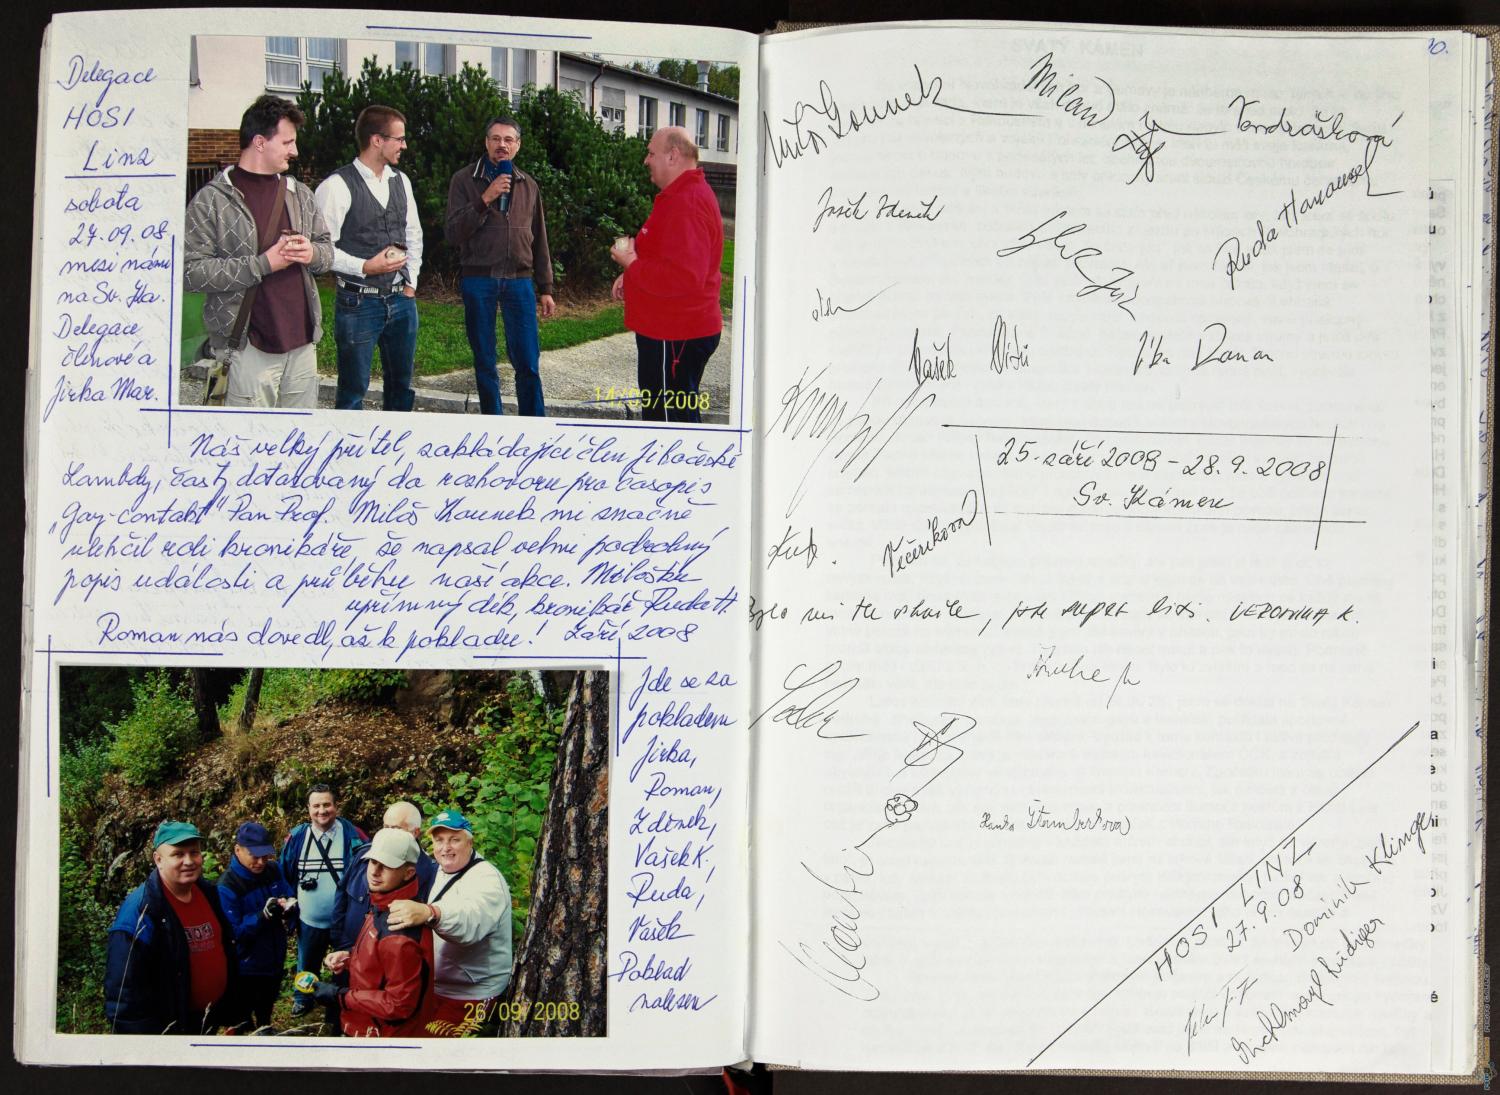 Delegace
HOSI
Linz
sobota
27.09.08
mezi námi
na Sv. Ka.
Delegace
členové a
Jirka Mar.
14/09/2008
Náš velký přítel, zakládající člen Jihočeské
Lambdy, častý dotazovaný do rozhovoru pro časopis
„Gay-contakt" Pan Prof. Miloš Kounek mi značně
ulehčil roli kronikáře, že napsal velmi podrobný
popis události a průběhu naší akce. Milošku
upřímný dík, kronikář Ruda H.
Roman nás dovedl, až k pokladu! Září 2008
Jde se za
pokladem
Jirka,
Roman,
Zdenek,
Vašek K.,
Ruda,
Vašek
Poklad
nalezen
26/09/2008
10.
Milan
Vondrášková
Ruda Hanousek
Vašek
25. září 2008 - 28.9.2008
Sv. Kámen
Večeříková
Bylo mi tu skvěle, jste super lidi. VERONIKA K.
Hanka Šternberková
HOSI LINZ
27.9.08
Dominik Klinger
Rüdiger